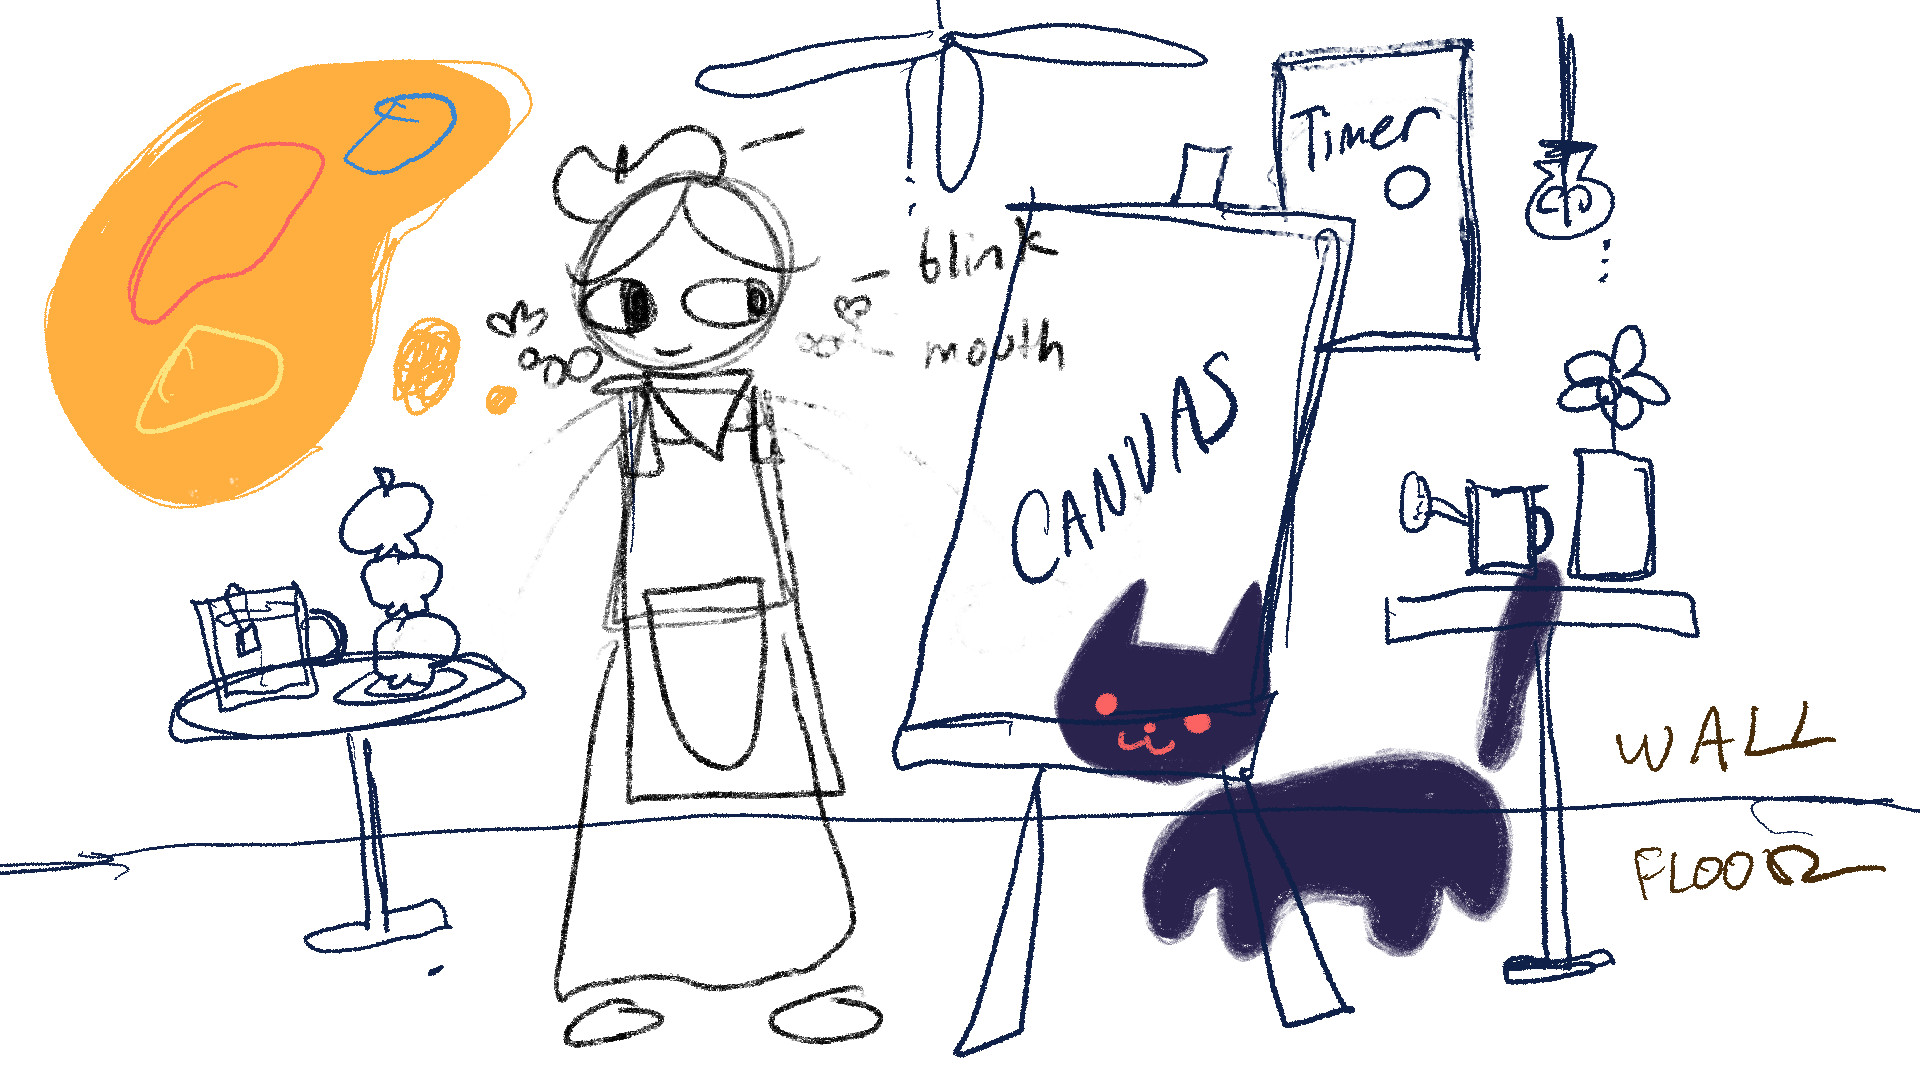 Timer
blink
mouth
CANVAS
WALL
FLOOR